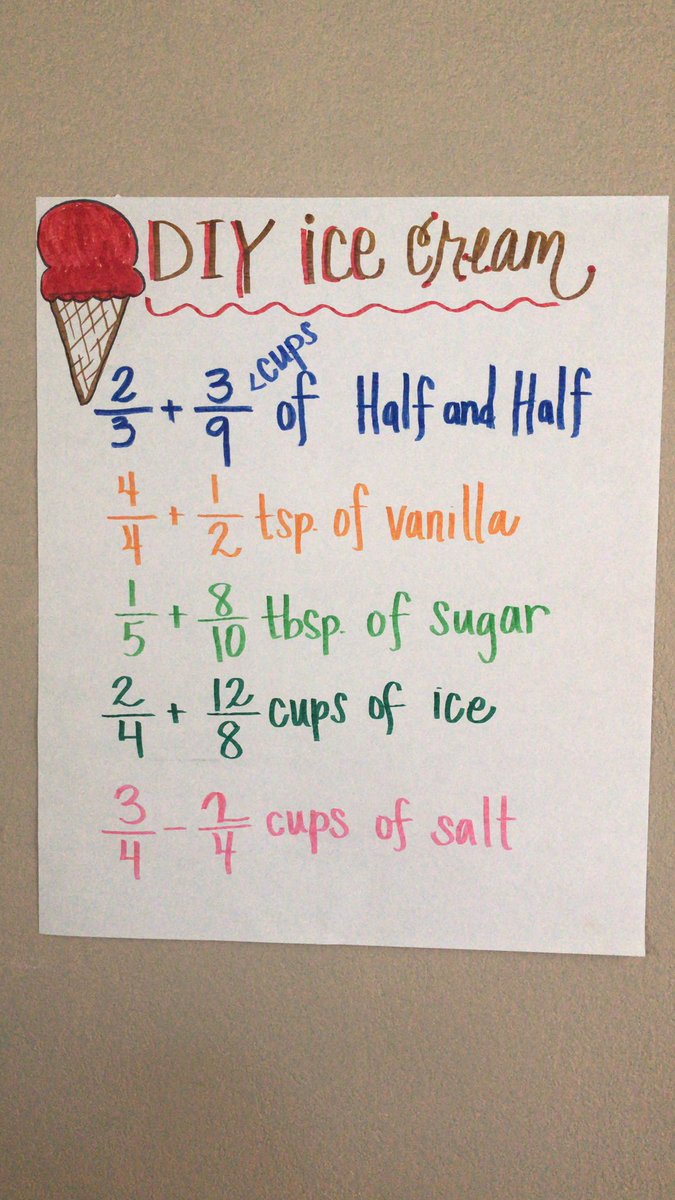 DIY ice cream
2/3 + 3/9 cups of Half and Half
4/4 + 1/2 tsp. of vanilla
1/5 + 8/10 tbsp. of sugar
2/4 + 12/8 cups of ice
3/4 - 2/4 cups of salt